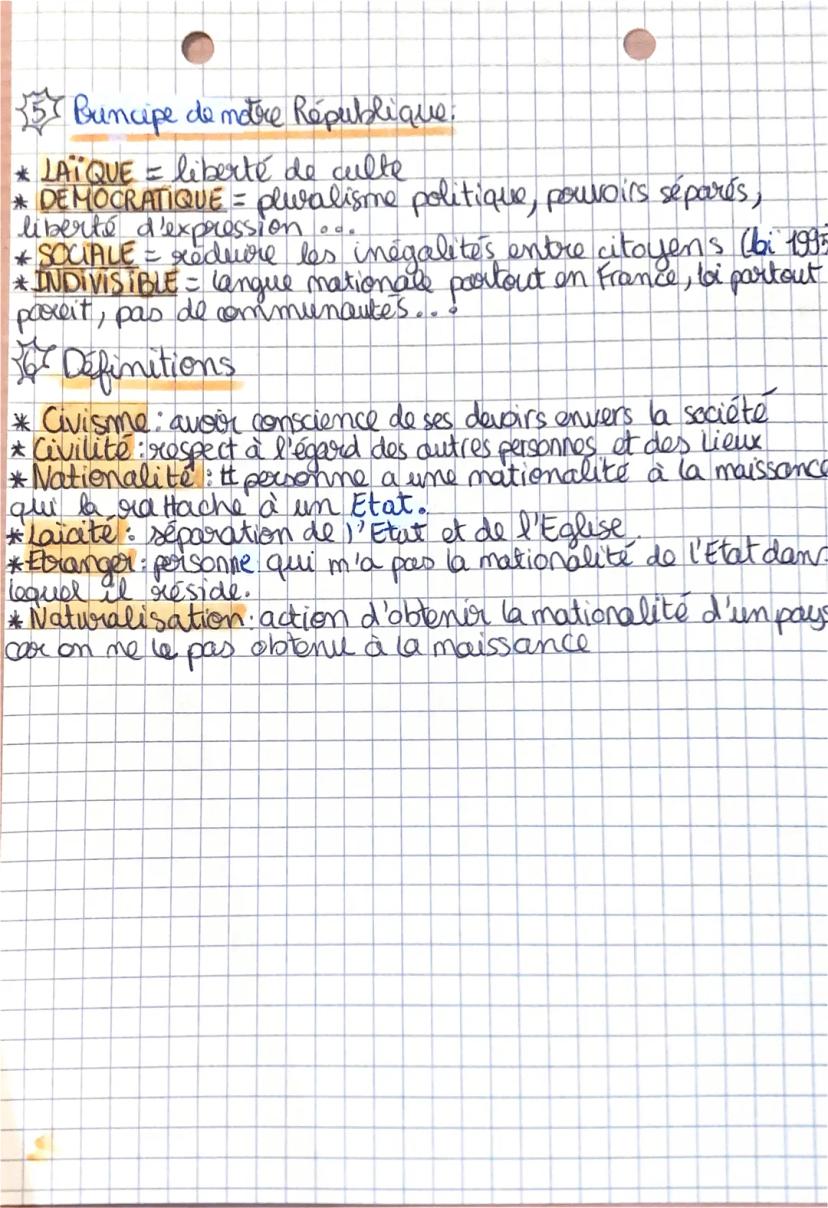 5 Principe de notre République:
* LAÏQUE = liberté de culte
* DEMOCRATIQUE = pluralisme politique, pouvoirs séparés,
liberté d'expression ...
* SOCIALE = réduire les inégalités entre citoyens (loi 1995
* INDIVISIBLE = langue nationale partout en France, loi partout
pareit, pas de communautés...
6 Définitions
* Civisme : avoir conscience de ses devoirs envers la société
* Civilité : respect à l'égard des autres personnes et des lieux
* Nationalité : tt personne a une nationalité à la naissance
qui la rattache à un Etat.
* Laïcité : séparation de l'Etat et de l'Eglise
* Etranger : personne qui n'a pas la nationalité de l'Etat dans
lequel il réside.
* Naturalisation : action d'obtenir la nationalité d'un pays
car on ne le pas obtenu à la naissance